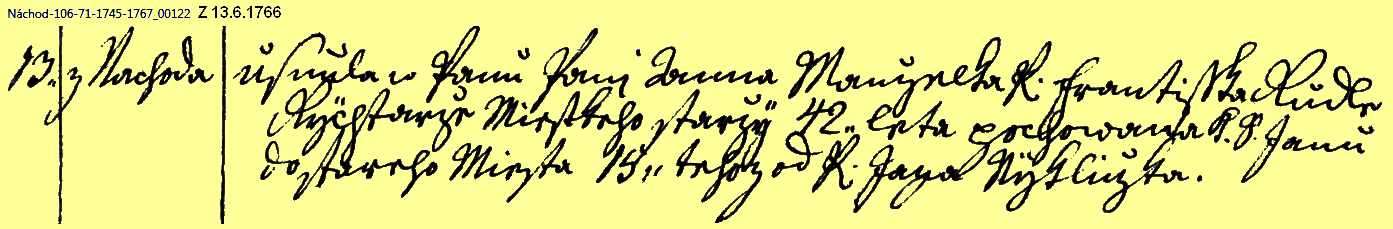 Náchod-106-71-1745-1767_00122 Z 13.6.1766
13. z Nachoda usnula w Panu Pani Anna Manzelka P. Frantisska Rudle
Rychtarze Miestkeho starzy 42. leta pochowana k S. Janu
do stareho Miesta 15.. tehoz od P. Jana Nyklicka.